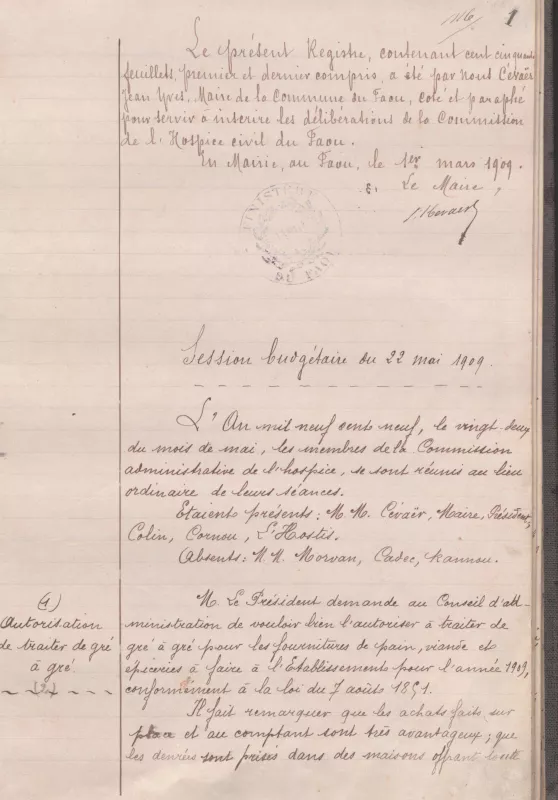 1
Le présent Registre, contenant cent cinquante
feuillets, premier et dernier compris, a été par nous Cévaër
Jean Yves, Maire de la Commune du Faou, coté et paraphé
pour servir à inscrire les délibérations de la Commission
de l'Hospice civil du Faou.
En Mairie, au Faou, le 1er mars 1909.
Le Maire,
DU FAOU
Session budgétaire du 22 mai 1909.
L'An mil neuf cent neuf, le vingt-deux
du mois de mai, les membres de la Commission
administrative de l'hospice, se sont réunis au lieu
ordinaire de leurs séances.
Etaient présents: M.M. Cévaër, Maire, Président,
Colin, Cornou, L'Hostis.
Absents: M.M. Morvan, Cadec, Kannou.
(1)
Autorisation
de traiter de gré
à gré.
M. Le Président demande au Conseil d'ad-
ministration de vouloir bien l'autoriser à traiter de
gré à gré pour les fournitures de pain, viande et
épiceries à faire à l'Etablissement pour l'année 1909,
conformément à la loi du 7 août 1851.
Il fait remarquer que les achats faits sur
place et au comptant sont très avantageux; que
les denrées sont prises dans des maisons offrant toute